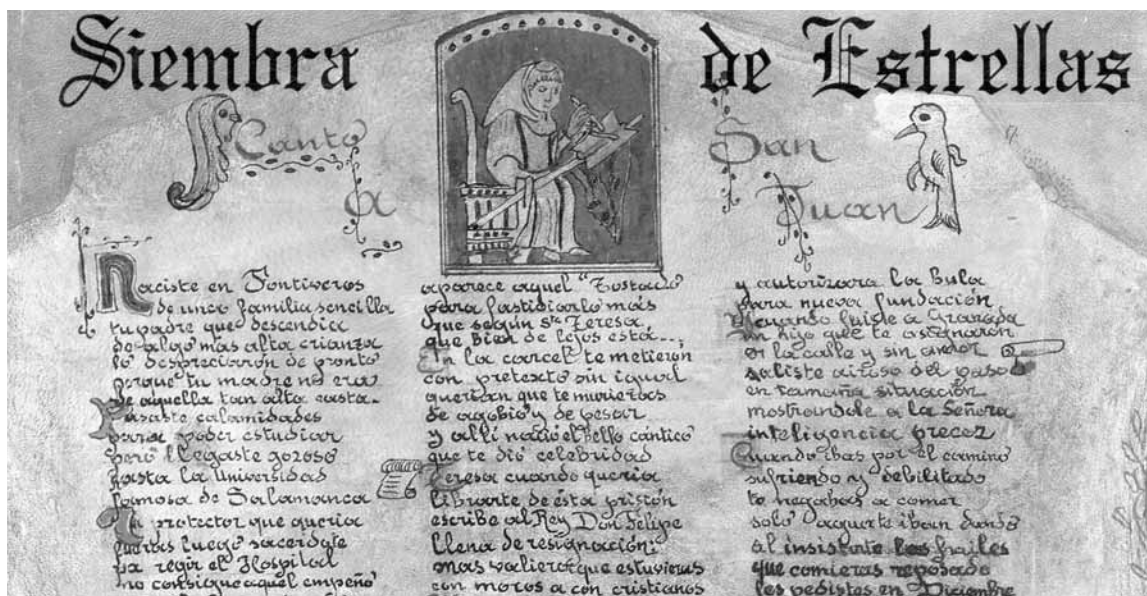 Siembra de Estrellas
Canto a San Juan
Naciste en Fontiveros
de una familia sencilla
tu padre que descendia
de algo más alta crianza
lo despreciaron de pronto
porque tu madre no era
de aquella tan alta casta.
Pasaste calamidades
para poder estudiar
pero llegaste gozoso
hasta la Universidad
famosa de Salamanca
protector que queria
fueras luego sacerdote
va regir el Hospital
no consigue aquel empeño
aparece aquel "Tostado
para fastidiarlo más
que según Sta Teresa
que bien de lejos está...
En la carcel te metieron
con pretexto sin igual
querian que te murieras
de agobio y de pesar
y allí nació el bello cántico
que te dió celebridad
Teresa cuando queria
librarte de ésta prisión
escribe al Rey Don Felipe
llena de resignación:
mas valiera que estuvieras
con moros a con cristianos
y autorizara la Bula
para nueva fundación
cuando fuiste a Granada
un hijo que te asignaron
en la calle y sin andar
saliste airoso del paso
en tamaña situación
mostrandole a la Señora
inteligencia precoz
Cuando ibas por el camino
sufriendo y debilitado
te negabas a comer
solo aquarte iban dando
al insistirte los frailes
que comieras reposado
les pedistes en Diciembre